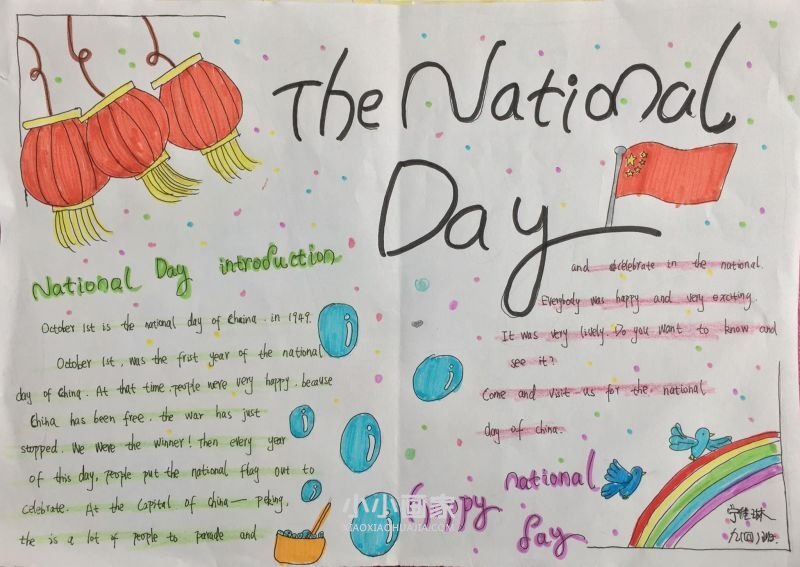 The National
Day
National Day introduction
October 1st is the national day of Chaina. in 1949.
October 1st, was the first year of the national
day of China. At that time, people were very happy, because
China has been free. the war has just
stopped. We were the winner! Then every year
of this day, people put the national flag out to
celebrate. At the Capital of China— peking,
the is a lot of people to parade and
and celebrate in the national.
Everybody was happy and very exciting.
It was very lively. Do you want to know and
see it?
Come and visit us for the national
day of china.
happy national
day
小小画家
XIAOXIAOHUAJIA.COM
九(四)班